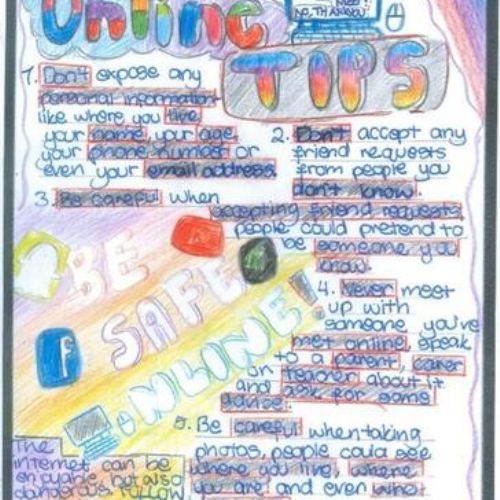 Online
NO, THANKYOU
TIPS
1. Don't expose any
personal information
like where you live,
your name, your age,
your phone number or
even your email address.
2. Don't accept any
friend requests
from people you
don't know.
3. Be careful when
accepting friend requests
people could pretend to
be someone you
know.
4. Never meet
up with
someone you've
met online, speak
to a parent, carer
or teacher about it
and ask for some
BE
SAFE
ONLINE!
f
5. Be careful when taking
photos, people could see
where you live, where
you are and even
The
internet can be
enjoyable but also
dangerous, follow